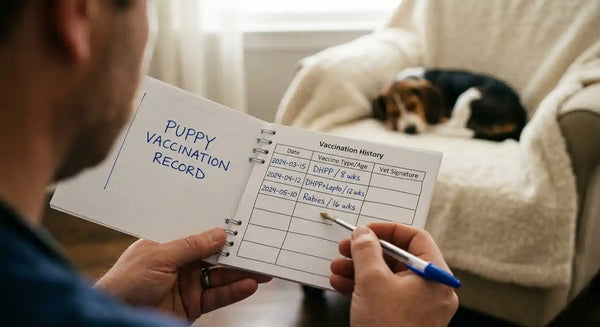 PUPPY
VACCINATION
RECORD
Vaccination History
Date Vaccine Type/Age Vet Signature
2024-03-15 DHPP / 8 wks
2024-04-12 DHPP+Lepto/12 wks
2024-05-10 Rabies / 16 wks